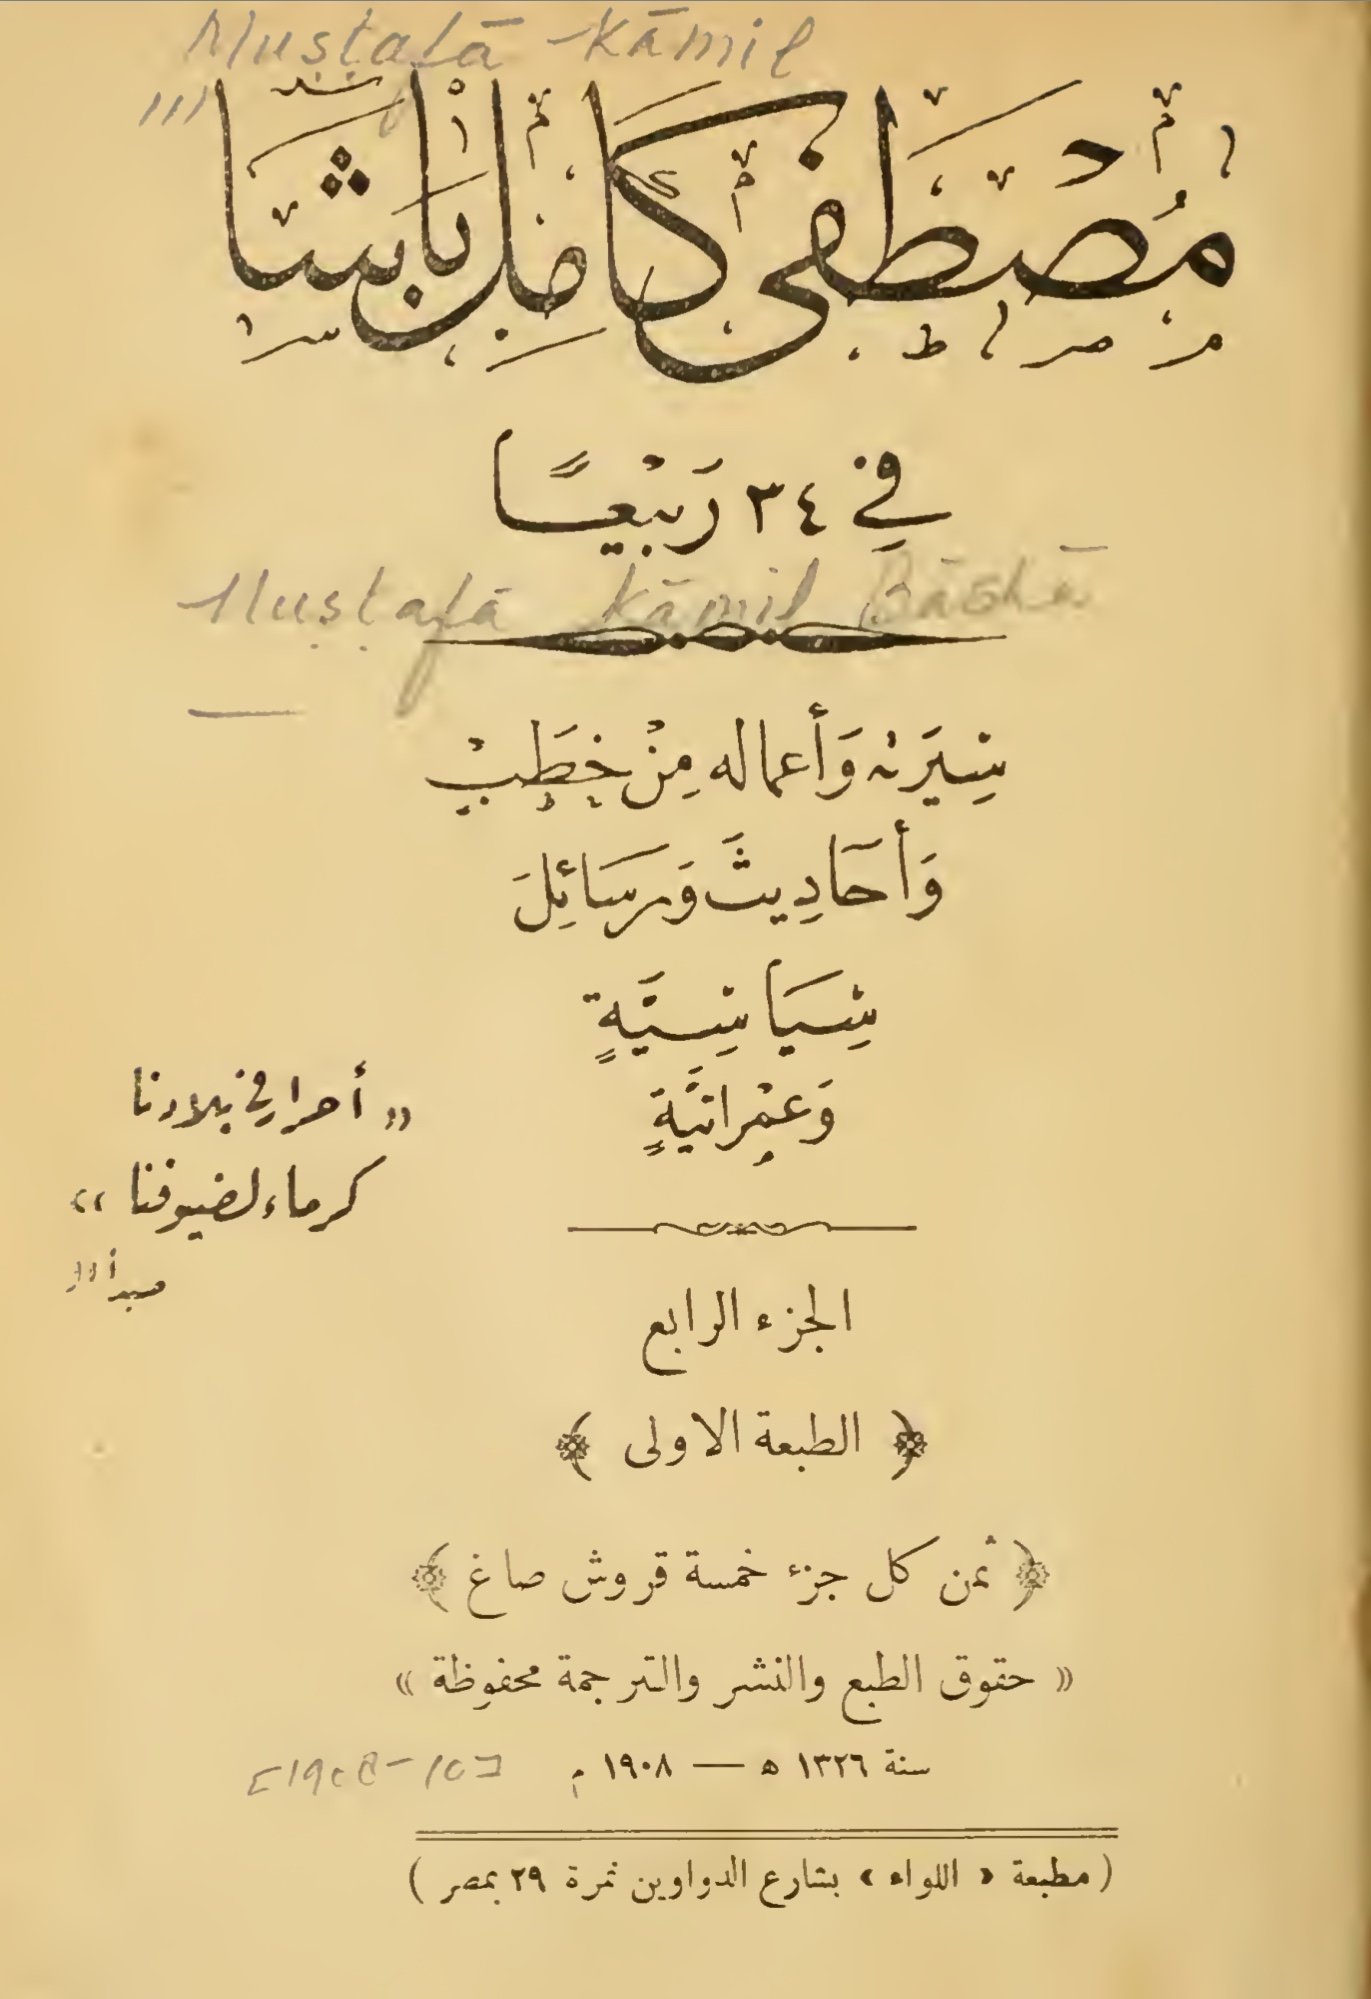 Mustafā Kāmil
مُصْطَفَى كَامِل بَاشَا
فِي ٣٤ رَبِيْعًا
Mustafā Kāmil Bāshā
سِيْرَته وَأَعماله مِنْ خُطَبٍ
وَأَحَادِيثَ وَرَسَائِلَ
سِيَاسِيَّةٍ
وَعُمْرَانيَّةٍ
„ أحرار في بلادنا
كرماء لضيوفنا “
مبدأ
الجزء الرابع
﴿ الطبعة الاولى ﴾
﴿ ثمن كل جزء خمسة قروش صاغ ﴾
« حقوق الطبع والنشر والترجمة محفوظة »
سنة ١٣٢٦ ه — ١٩٠٨ م [1908-10]
( مطبعة « اللواء » بشارع الدواوين نمرة ٢٩ بمصر )